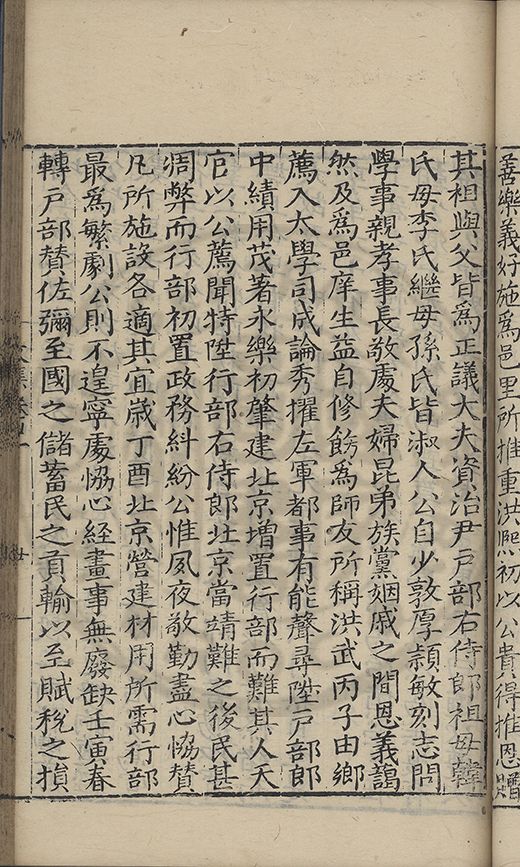 善樂義好施爲邑里所推重洪熙初以公貴得推恩贈
其祖與父皆爲正議大夫資治尹戶部右侍郎祖母韓
氏母李氏繼母孫氏皆淑人公自少敦厚頴敏刻志問
學事親孝事長敬處夫婦昆弟族黨姻戚之間恩義藹
然及爲邑庠生益自修飭爲師友所稱洪武丙子由鄉
薦入太學司成論秀擢左軍都事有能聲尋陞戶部郎
中績用茂著永樂初肇建北京增置行部而難其人天
官以公薦聞特陞行部右侍郎北京當靖難之後民甚
凋弊而行部初置政務糾紛公惟夙夜敬勤盡心協賛
凡所施設各適其宜歲丁酉北京營建材用所需行部
最爲繁劇公則不遑寧處協心經畫事無廢缺壬寅春
轉戶部賛佐彌至國之儲蓄民之貢輸以至賦稅之損